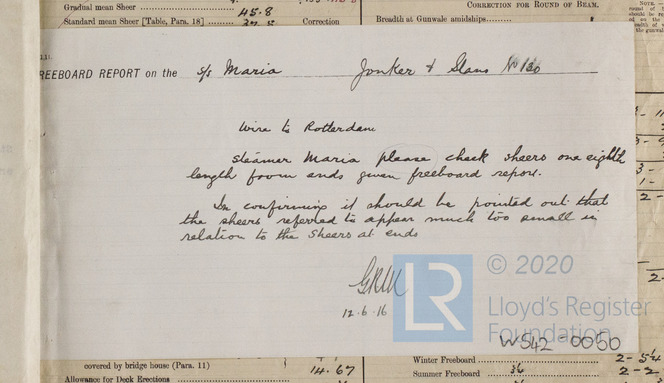 Gradual mean Sheer 45.8
Standard mean Sheer [Table, Para. 18] Correction
CORRECTION FOR ROUND OF BEAM.
Breadth at Gunwale amidships
NOTE.
REEBOARD REPORT on the s/s Maria Jonker & Stans No 130
Wire to Rotterdam
Steamer Maria please check sheers one eighth
length from ends given freeboard report.
In confirming it should be pointed out that
the sheers referred to appear much too small in
relation to the sheers at ends
12.6.16
LR
© 2020
Lloyd's Register
Foundation
W542-0050
covered by bridge house (Para. 11)
14.67
Allowance for Deck Erections
Winter Freeboard 2-5¼
Summer Freeboard